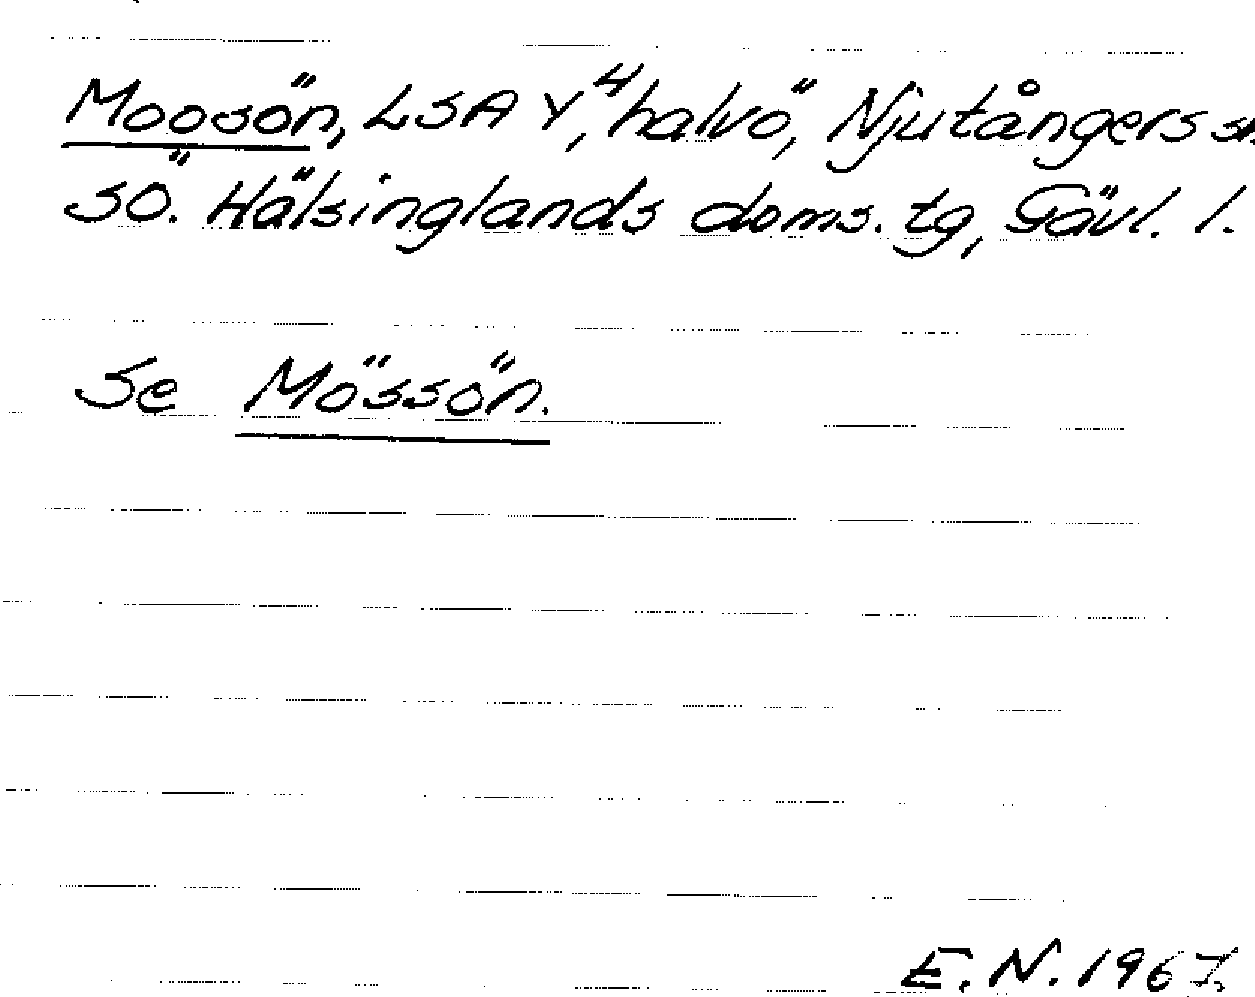 Moosön, LSA Y,⁴ halvö, Njutångers sn
SÖ. Hälsinglands doms. tg, Gävl. l.
Se Mössön.
E.N. 1967.